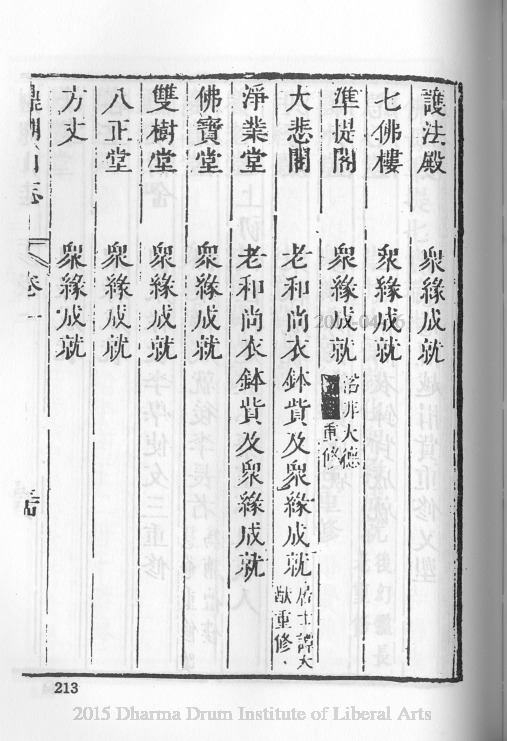 護法殿 衆緣成就
七佛樓 衆緣成就
準提閣 衆緣成就 若非大德 重修
大悲閣 老和尚衣鉢貲及衆緣成就 居士譚大猷重修
淨業堂 老和尚衣鉢貲及衆緣成就
佛寶堂 衆緣成就
雙樹堂 衆緣成就
八正堂 衆緣成就
方丈 衆緣成就
鼎湖山志 卷一
213
2015 Dharma Drum Institute of Liberal Arts